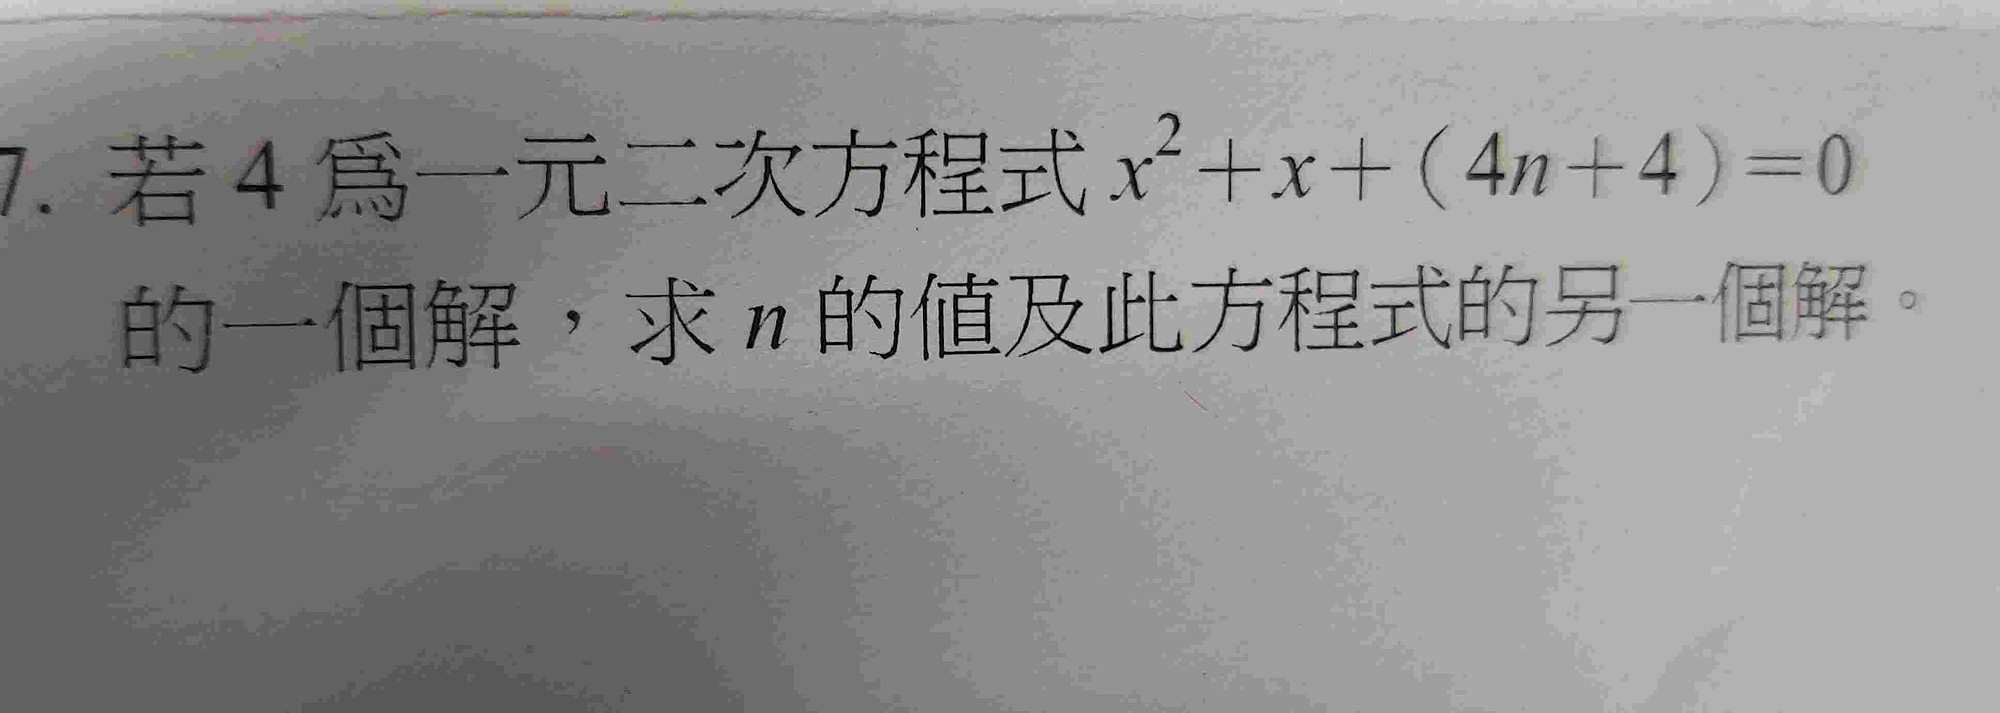 7. 若 4 爲一元二次方程式 x²+x+(4n+4)=0
的一個解，求 n 的値及此方程式的另一個解。